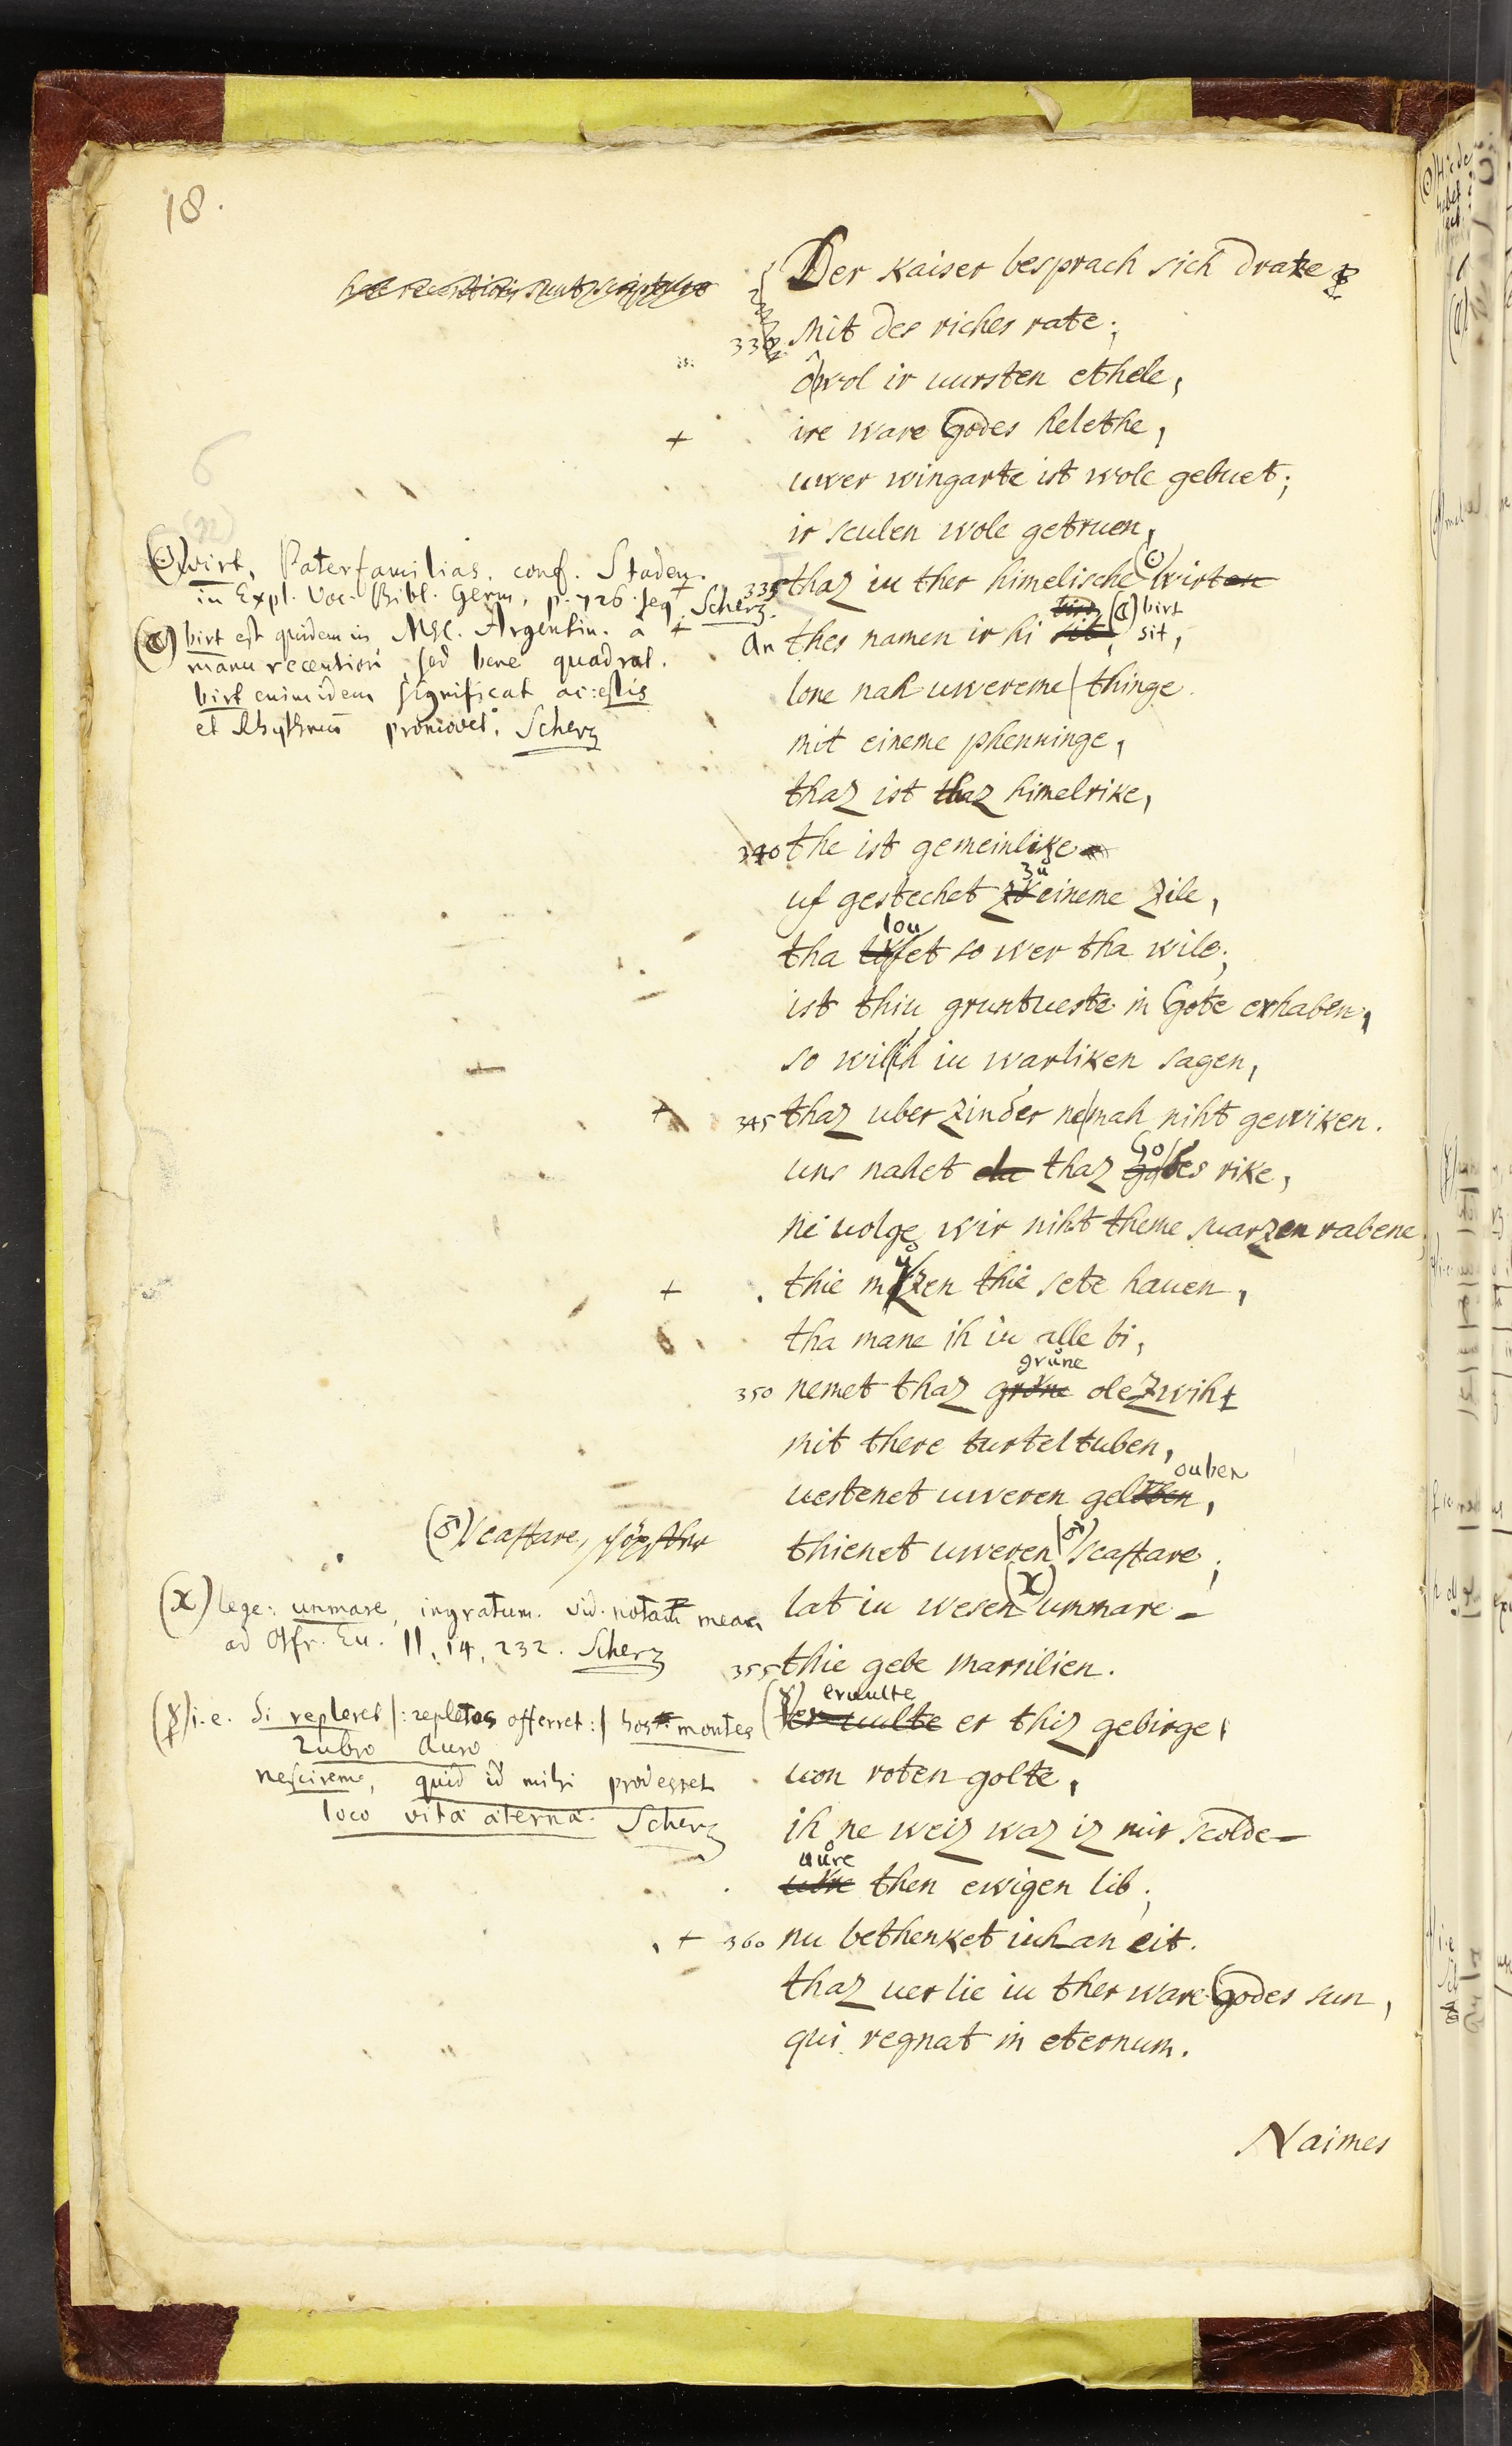 18.
Der kaiser besprach sich drate
330 Mit des riches rate;
o wol ir uursten ethele,
+ ire ware Godes helethe,
uwer wingarte ist wole gebuet;
ir sculen wole getruen,
335 thaz iu ther himelische (☉) wirt en
An thes namen ir hi sit, (☾) birt sit,
lone nah uwereme thinge.
mit eineme phenninge,
thaz ist thaz himelrike,
340 the ist gemeinlike
uf gestechet zů eineme zile,
tha loufet so wer tha wile;
ist thiu gruntueste in Gote erhaben,
so wil ih iu warliken sagen,
+ 345 thaz uber zinder ne mah niht gewiken.
uns nahet da thaz Godes rike,
ne uolge wir niht theme suarzen rabene,
+ thie můzen thie sete hauen,
tha mane ih iu alle bi,
350 nemet thaz grůne olezwiht
mit there turteltuben,
uestenet uweren gelouben,
thienet uweren (♂) scaftare;
lat iu wesen (x) ummare
355 thie gebe Marsilien.
(☿) eruulte er thiz gebirge,
uon roten golte,
ih ne weiz waz iz mir scolde
uůre then ewigen lib;
+ 360 nu bethenket iuh an eit.
thaz uerlie iu ther ware Godes sun,
qui regnat in eternum.
Naimes
(☉) wirt, Paterfamilias. conf. Staden.
in Expl. Voc. Bibl. Germ. p. 726. seq. Scherz.
(☾) birt est quidem in MSC. Argentin. a
manu recentiori, sed bene quadrat.
birt enim idem significat ac: estis
et Rhythmū promovet. Scherz
(♂) scaftare, schöpffer
(x) lege: unmare, ingratum. vid. notam meam
ad Otfr. Eu. II, 14, 232. Scherz
(☿) i.e. Si repleret |: repletos offerret :| hos montes
rubro auro
nescirem, quid id mihi prodesset
loco vitæ æternæ. Scherz